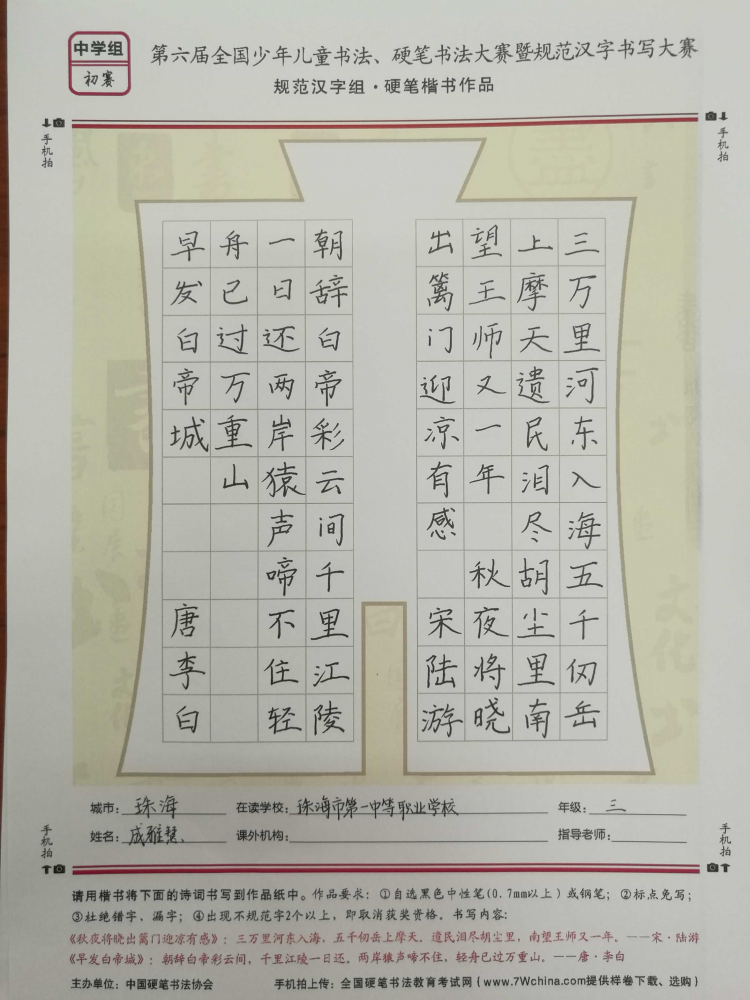 中学组
初赛
第六届全国少年儿童书法、硬笔书法大赛暨规范汉字书写大赛
规范汉字组·硬笔楷书作品
手机拍
手机拍
三万里河东入海五千仞岳
上摩天遗民泪尽胡尘里南
望王师又一年 秋夜将晓
出篱门迎凉有感 宋陆游
朝辞白帝彩云间千里江陵
一日还两岸猿声啼不住轻
舟已过万重山
早发白帝城 唐李白
城市：珠海 在读学校：珠海市第一中等职业学校 年级：三
姓名：成雅慧 课外机构： 指导老师：
手机拍
手机拍
请用楷书将下面的诗词书写到作品纸中。作品要求：①自选黑色中性笔(0.7mm以上)或钢笔；②标点免写；
③杜绝错字、漏字；④出现不规范字2个以上，即取消获奖资格。书写内容：
《秋夜将晓出篱门迎凉有感》：三万里河东入海，五千仞岳上摩天。遗民泪尽胡尘里，南望王师又一年。——宋·陆游
《早发白帝城》：朝辞白帝彩云间，千里江陵一日还。两岸猿声啼不住，轻舟已过万重山。——唐·李白
主办单位：中国硬笔书法协会 手机拍上传：全国硬笔书法教育考试网(www.7Wchina.com提供样卷下载、选购)